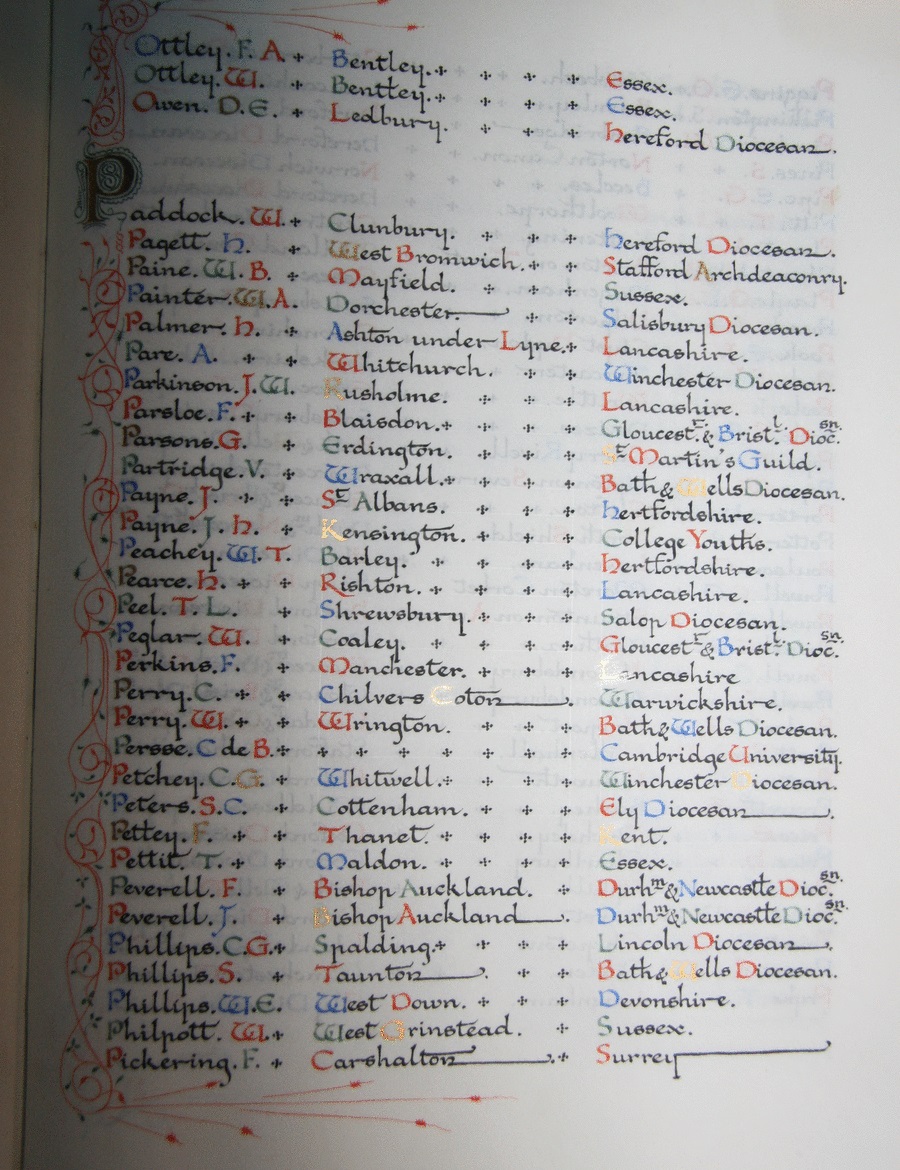 Ottley. F. A. Bentley. Essex.
Ottley. W. Bentley. Essex.
Owen. D. E. Ledbury. Hereford Diocesan.
Paddock. W. Clunbury. Hereford Diocesan.
Pagett. H. West Bromwich. Stafford Archdeaconry.
Paine. W. B. Mayfield. Sussex.
Painter. W. A. Dorchester. Salisbury Diocesan.
Palmer. H. Ashton under Lyne. Lancashire.
Pare. A. Whitchurch. Winchester Diocesan.
Parkinson. J. W. Rusholme. Lancashire.
Parsloe. F. Blaisdon. Gloucest.r & Brist.l Dioc.sn.
Parsons. G. Erdington. St Martin's Guild.
Partridge. V. Wraxall. Bath & Wells Diocesan.
Payne. J. St Albans. Hertfordshire.
Payne. J. H. Kensington. College Youths.
Peachey. W. T. Barley. Hertfordshire.
Pearce. H. Rishton. Lancashire.
Peel. T. L. Shrewsbury. Salop Diocesan.
Peglar. W. Coaley. Gloucest.r & Brist.l Dioc.sn.
Perkins. F. Manchester. Lancashire
Perry. C. Chilvers Coton. Warwickshire.
Perry. W. Wrington. Bath & Wells Diocesan.
Persse. C de B. Cambridge University.
Petchey. C. G. Whitwell. Winchester Diocesan.
Peters. S. C. Cottenham. Ely Diocesan.
Pettey. F. Thanet. Kent.
Pettit. T. Maldon. Essex.
Peverell. F. Bishop Auckland. Durhm & Newcastle Dioc.sn.
Peverell. J. Bishop Auckland. Durhm & Newcastle Dioc.sn.
Phillips. C. G. Spalding. Lincoln Diocesan.
Phillips. S. Taunton. Bath & Wells Diocesan.
Phillips. W. E. West Down. Devonshire.
Philpott. W. West Grinstead. Sussex.
Pickering. F. Carshalton. Surrey